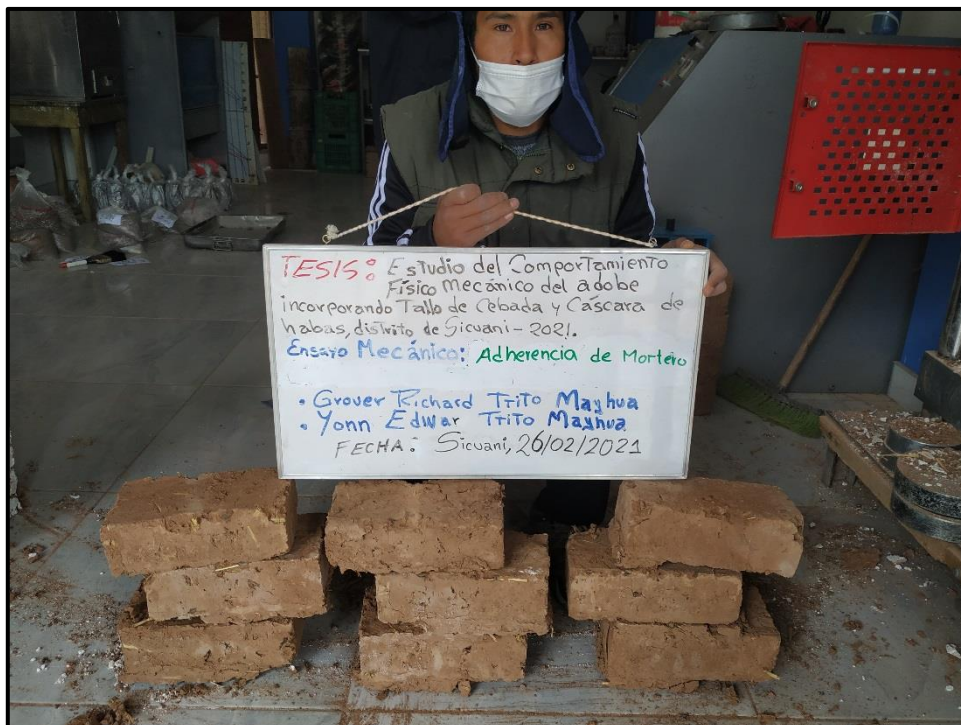 TESIS: Estudio del Comportamiento
Físico Mecánico del adobe
incorporando Tallo de Cebada y Cáscara de
habas, distrito de Sicuani - 2021.
Ensayo Mecánico: Adherencia de Mortero
• Grover Richard Trito Mayhua
• Yonn Edwar Trito Mayhua
FECHA: Sicuani, 26/02/2021